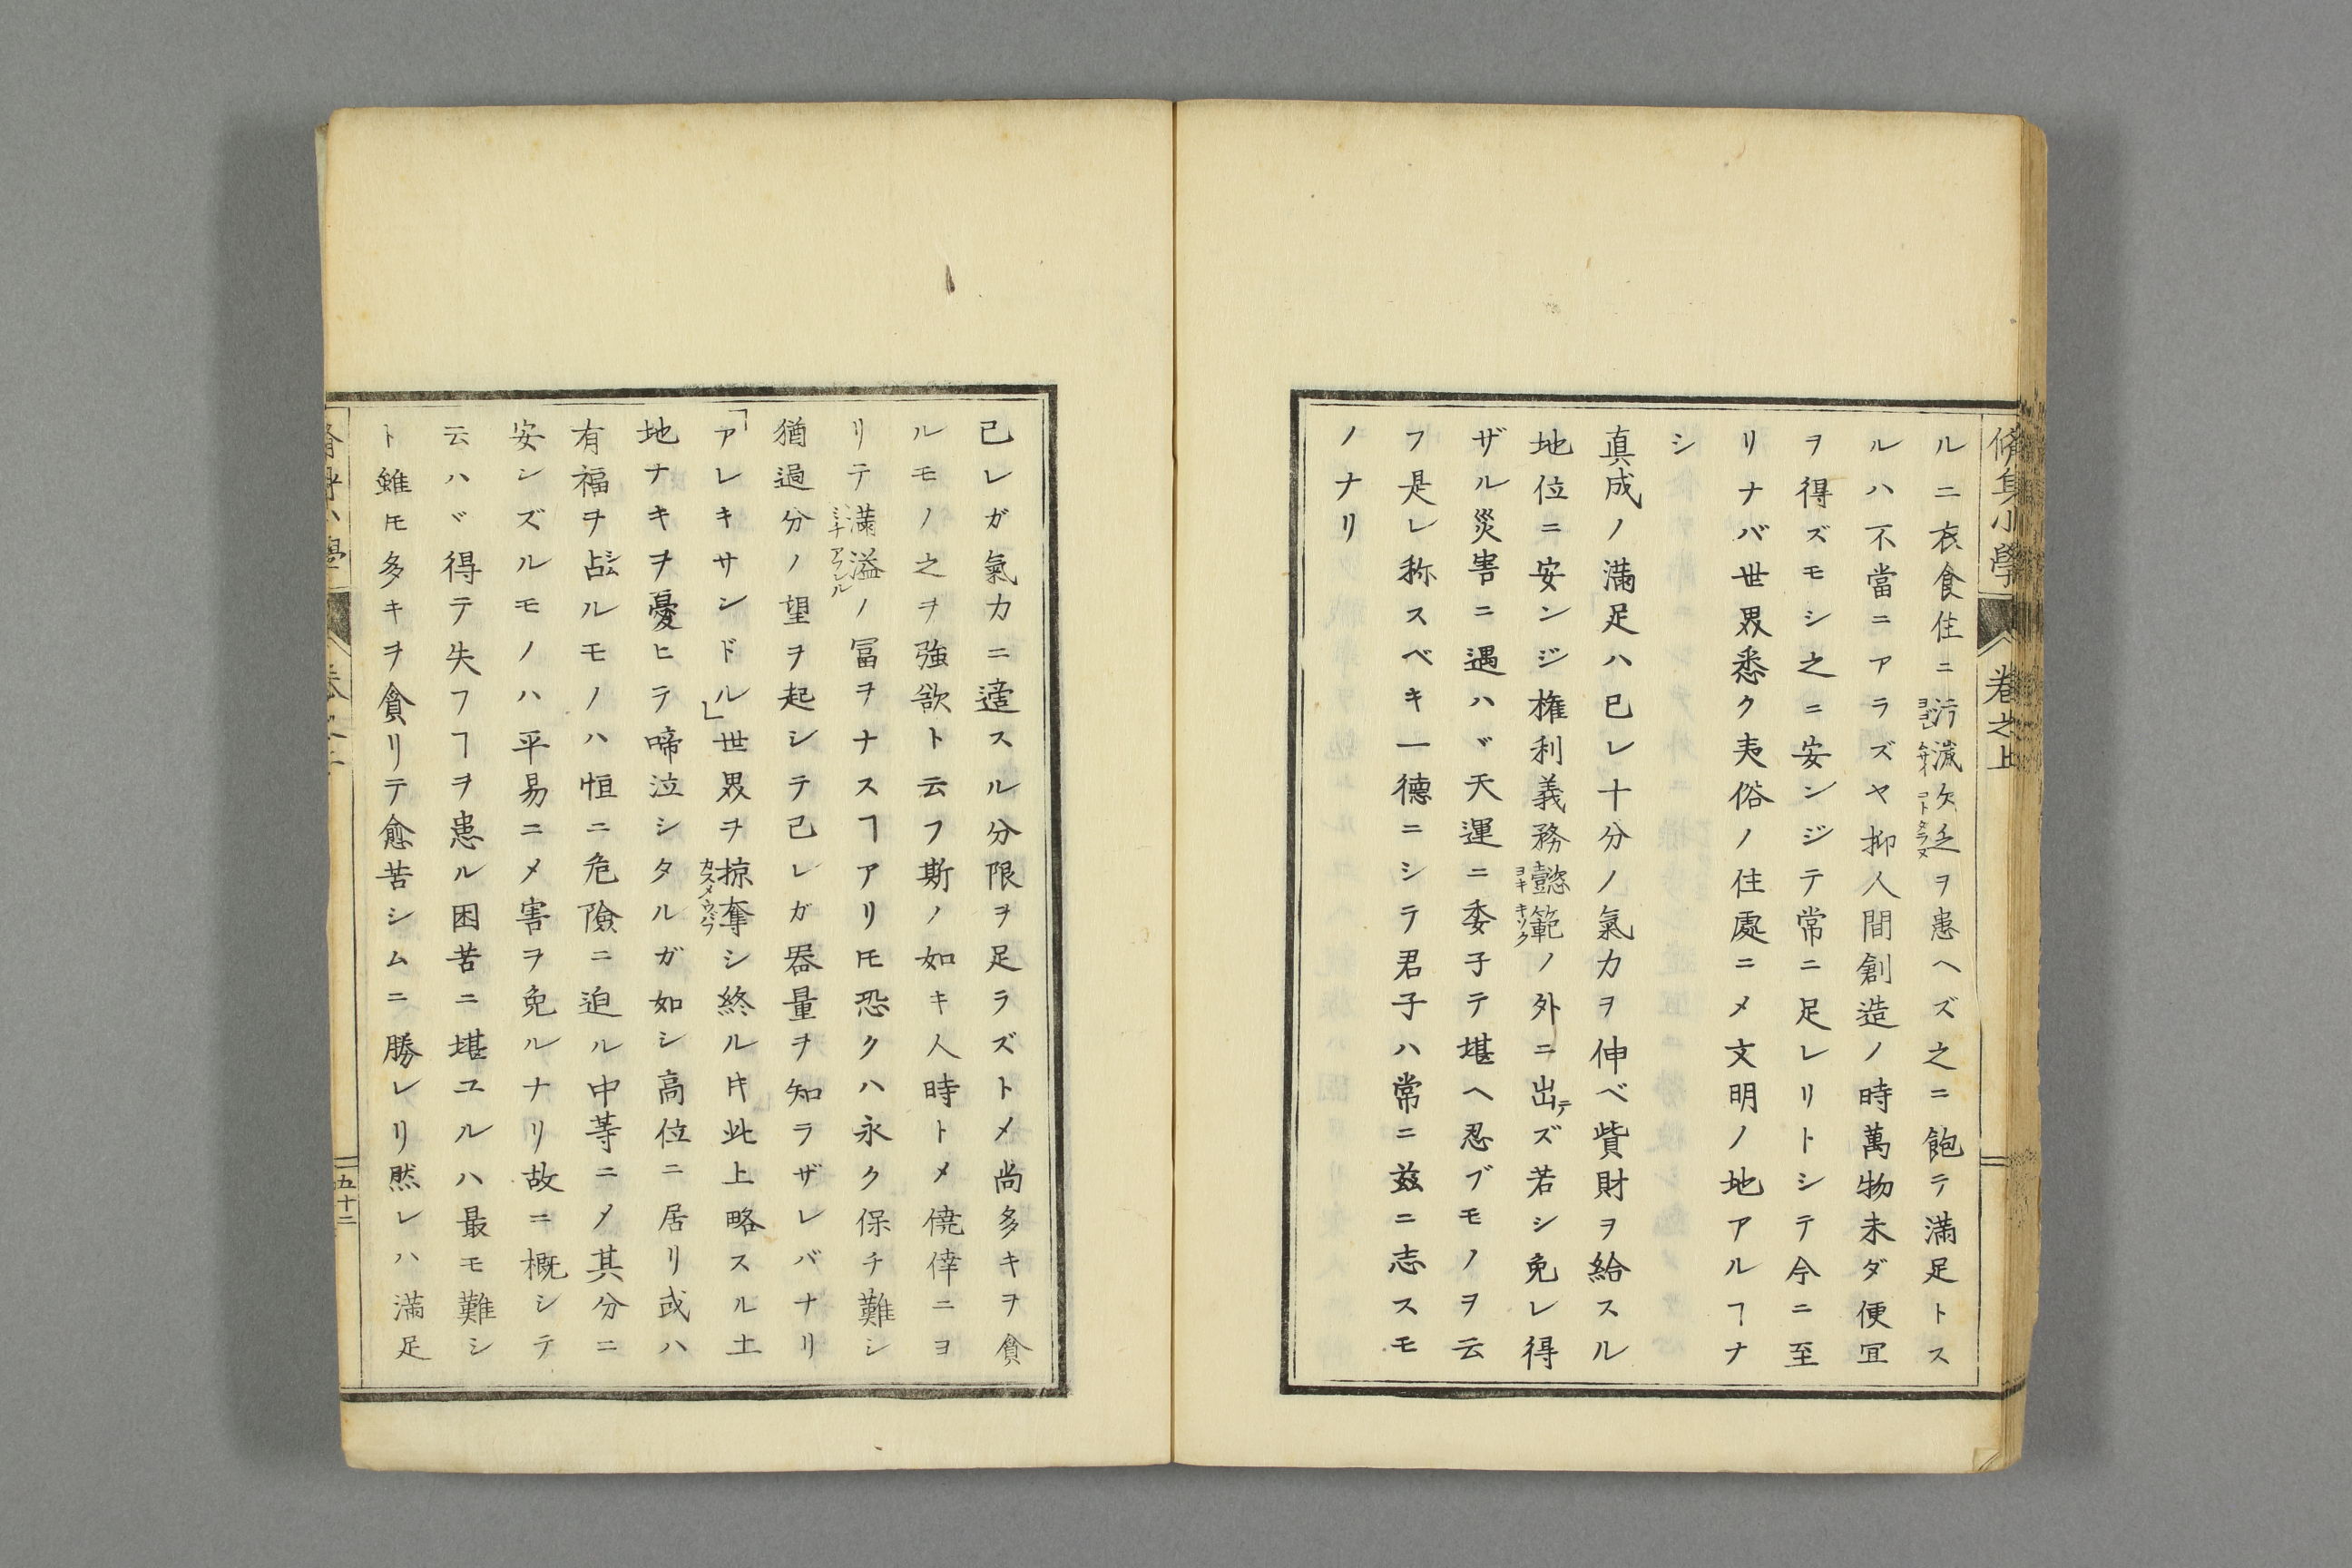 脩身小學 巻之上
ルニ衣食住ニ汚減欠乏ヲ患ヘズ之ニ飽テ満足トス
ルハ不當ニアラズヤ抑人間創造ノ時萬物未ダ便宜
ヲ得ズモシ之ニ安ンジテ常ニ足レリトシテ今ニ至
リナバ世界悉ク夷俗ノ住處ニメ文明ノ地アルヿナ
シ
真成ノ満足ハ己レ十分ノ氣力ヲ伸べ貲財ヲ給スル
地位ニ安ンジ権利義務懿範ノ外ニ出テズ若シ免レ得
ザル災害ニ遇ハヾ天運ニ委子テ堪ヘ忍ブモノヲ云
フ是レ称スベキ一德ニシテ君子ハ常ニ兹ニ志スモ
ノナリ
己レガ氣力ニ適スル分限ヲ足ラズトメ尚多キヲ貪
ルモノ之ヲ強欲ト云フ斯ノ如キ人時トメ僥倖ニヨ
リテ満溢ノ冨ヲナスヿアリモ恐クハ永ク保チ難シ
猶過分ノ望ヲ起シテ己レガ器量ヲ知ラザレバナリ
「アレキサンドル」世界ヲ掠奪シ終ル時此上略スル土
地ナキヲ憂ヒテ啼泣シタルガ如シ高位ニ居リ或ハ
有福ヲ占ルモノハ恒ニ危險ニ迫ル中等ニメ其分ニ
安シズルモノハ平易ニメ害ヲ免ルナリ故ニ概シテ
云ハヾ得テ失フヿヲ患ル困苦ニ堪ユルハ最モ難シ
ト雖モ多キヲ貪リテ愈苦シムニ勝レリ然レハ満足
五十二